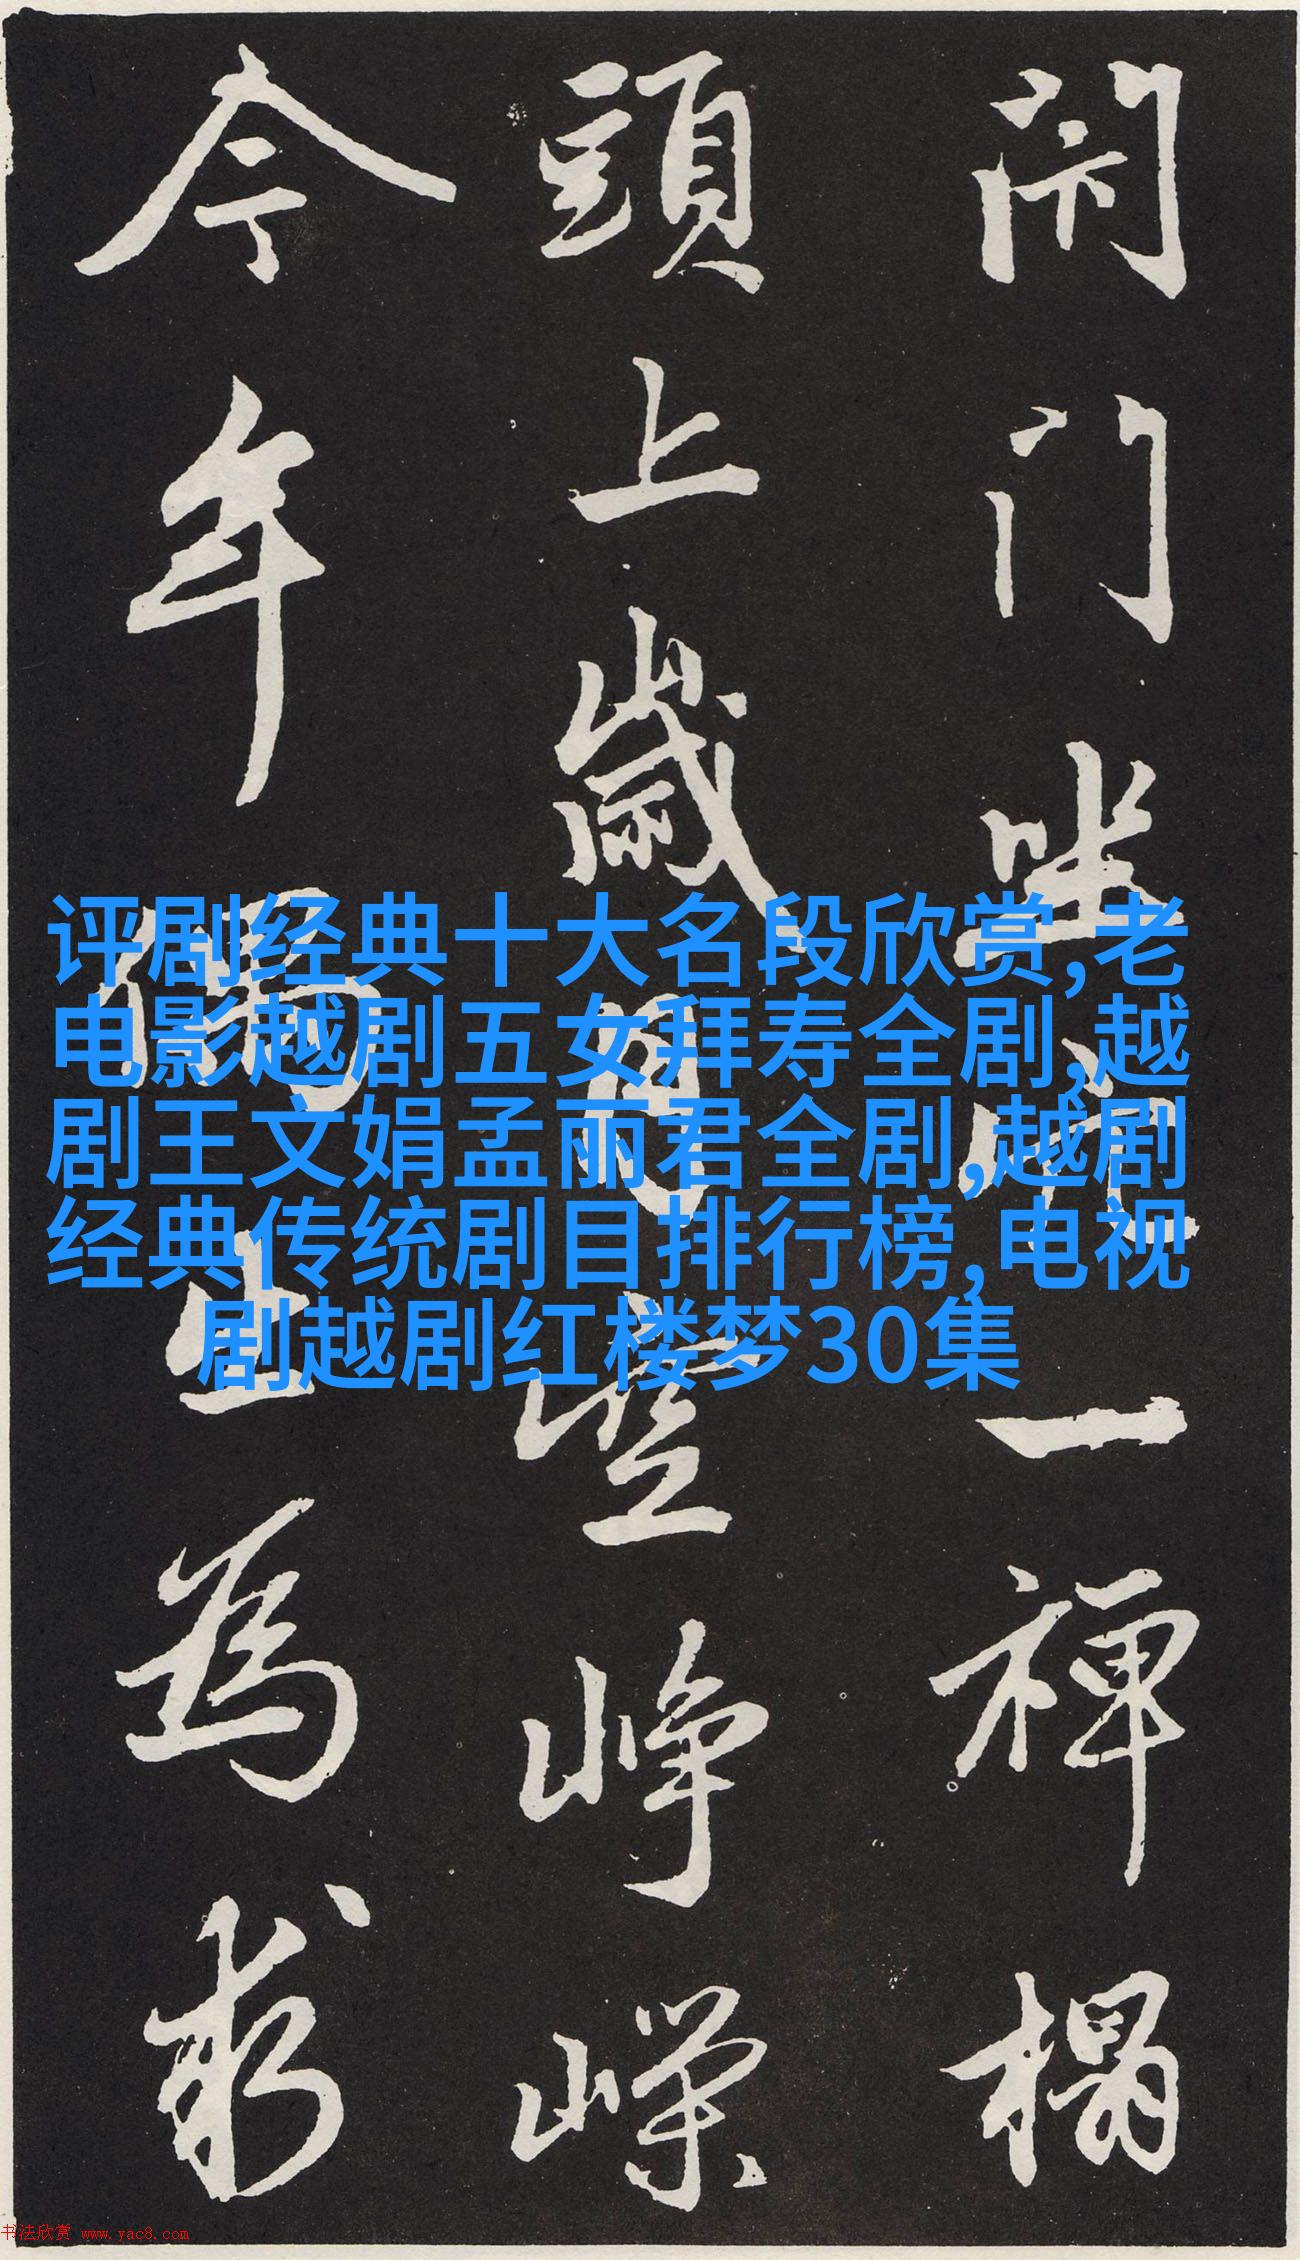 闭门坐穴一禅榻
頭上歲月空峥嶸
今年偶出為求
评剧经典十大名段欣赏,老
电影越剧五女拜寿全剧,越
剧王文娟孟丽君全剧,越剧
经典传统剧目排行榜,电视
剧越剧红楼梦30集
书法欣赏 www.yac8.com